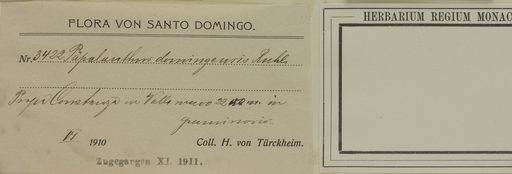 FLORA VON SANTO DOMINGO.
Nr. 3422 Papalanthus domingensis Ruhl.
Prope Constanza in Valle nuevo 2200 m in
graminosis.
VI 1910 Coll. H. von Türckheim.
Zugegangen XI. 1911.
HERBARIUM REGIUM MONAC